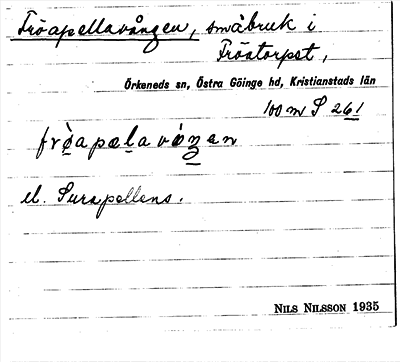 Fröapellavången, småbruk i
Fröatorpet,
Örkeneds sn, Östra Göinge hd, Kristianstads län
100 m S 261
el. Surapellens.
NILS NILSSON 1935